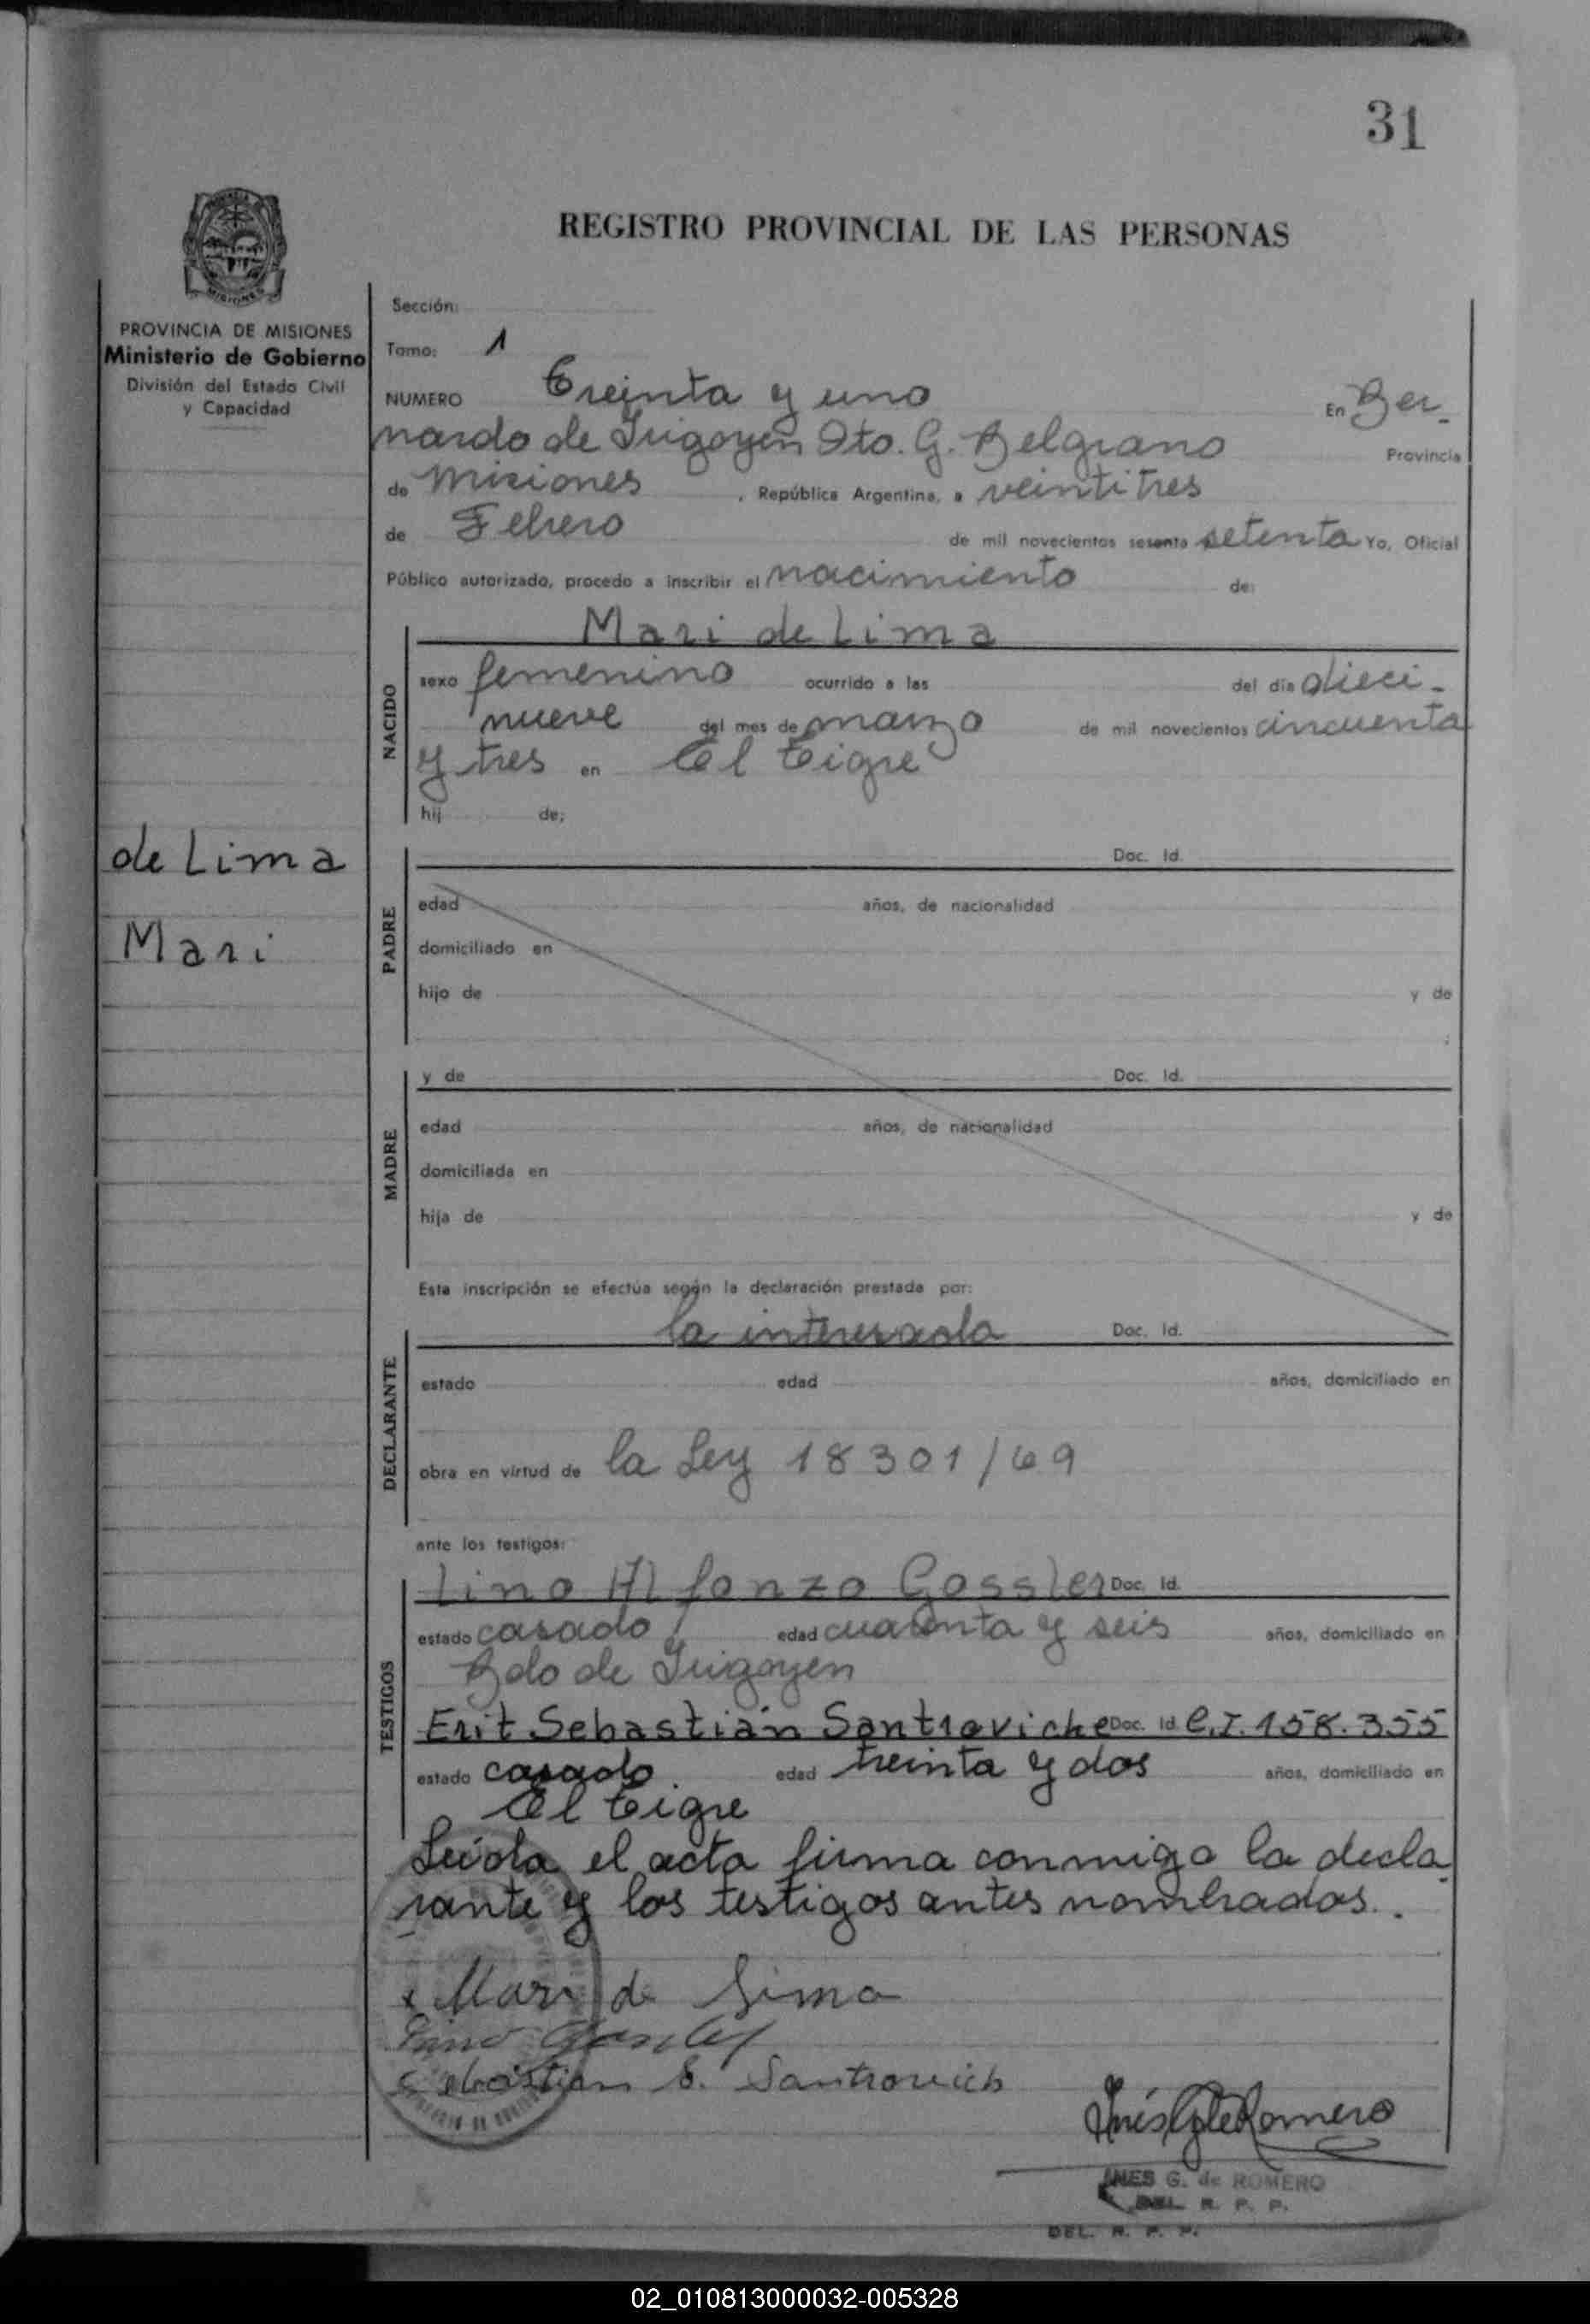 31
REGISTRO PROVINCIAL DE LAS PERSONAS
PROVINCIA DE MISIONES
Ministerio de Gobierno
División del Estado Civil
y Capacidad
de Lima
Mari
Sección:
Tomo: 1
NUMERO Treinta y uno En Ber-
nardo de Irigoyen Dto. G. Belgrano Provincia
de Misiones , República Argentina, a veintitres
de Febrero de mil novecientos sesenta setenta Yo, Oficial
Público autorizado, procedo a inscribir el nacimiento de:
NACIDO
Mari de Lima
sexo femenino ocurrido a las del día dieci-
nueve del mes de marzo de mil novecientos cincuenta
y tres en El Tigre
hij de;
PADRE
Doc. Id.
edad años, de nacionalidad
domiciliado en
hijo de y de
;
MADRE
y de Doc. Id.
edad años, de nacionalidad
domiciliada en
hija de y de
Esta inscripción se efectúa según la declaración prestada por:
DECLARANTE
la interesada Doc. Id.
estado edad años, domiciliado en
obra en virtud de la Ley 18301/69
ante los testigos:
TESTIGOS
Lino Alfonzo Gossler Doc. Id.
estado casado edad cuarenta y seis años, domiciliado en
Bdo de Irigoyen
Erit Sebastián Santroviche Doc. Id. C.I. 158.355
estado casado. edad treinta y dos años, domiciliado en
El Tigre
Leída el acta firma conmigo la decla-
rante y los testigos antes nombrados..
x Mari de Lima
Lino Gossler
Sebastian E. Santrovich
Inés G de Romero
INES G. de ROMERO
DEL. R. P. P.
DEL. R. P. P.
02_010813000032-005328